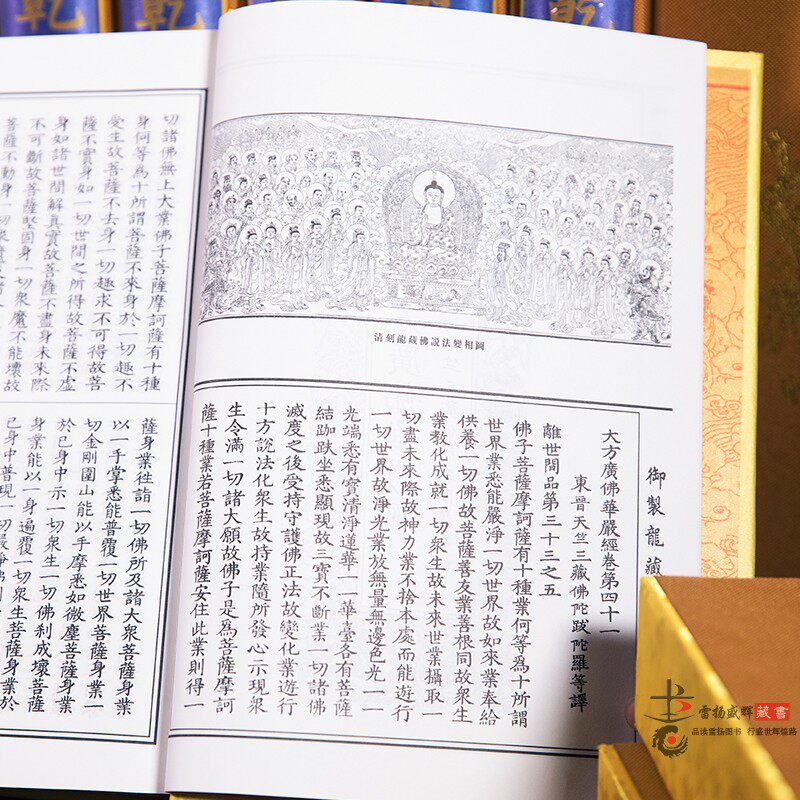 乾
乾
乾
乾
清刻龍藏佛說法變相圖
御製龍藏
大方廣佛華嚴經卷第四十一
東晉天竺三藏佛陀跋陀羅等譯
離世間品第三十三之五
佛子菩薩摩訶薩有十種業何等為十所謂
世界業悉能嚴淨一切世界故如來業奉給
供養一切佛故菩薩善友業善根同故衆生
業教化成就一切衆生故未來世業攝取一
切盡未來際故神力業不捨本處而能遊行
一切世界故淨光業放無量無邊色光一一
光端悉有寶清淨蓮華一一華臺各有菩薩
結跏趺坐悉顯現故三寶不斷業一切諸佛
滅度之後受持守護佛正法故變化業遊行
十方說法化衆生故持業隨所發心示現衆
生令滿一切諸大願故佛子是為菩薩摩訶
薩十種業若菩薩摩訶薩安住此業則得一
切諸佛無上大業佛子菩薩摩訶薩有十種
身何等為十所謂菩薩不來身於一切趣不
受生故菩薩不去身一切趣求不可得故菩
薩不實身如一切世間之所得故菩薩不虛
身如諸世間解真實故菩薩不盡身未來際
不可斷故菩薩堅固身一切衆魔不能壞故
菩薩不動身一切衆
薩身業往詣一切佛所及諸大衆菩薩身業
以一手掌悉能普覆一切世界菩薩身業一
切金剛圍山能以手摩悉如微塵菩薩身業
於已身中示一切衆生一切佛剎成壞菩薩
身業能以一身遍覆一切衆生菩薩身業於
已身中普現一切嚴淨佛剎
雷扬盛辉藏書
品读雷扬图书 行盛世辉煌路